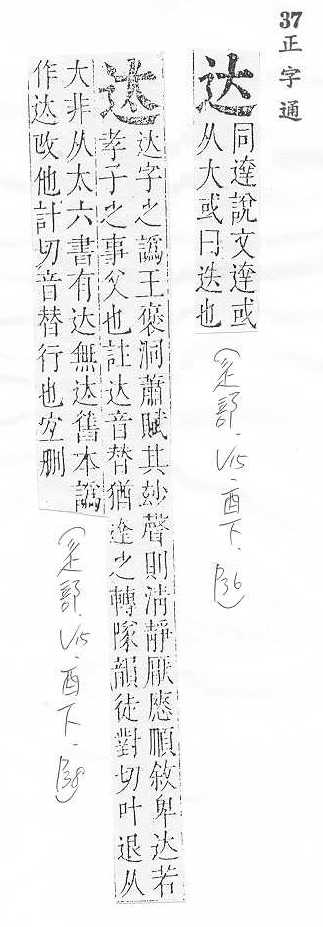 37正字通
达
同達說文達或
从大或曰迭也
(辵部.V15.酉下.P36)
迖
达字之譌王褒洞蕭賦其妙聲則清靜厭瘱順敘卑迖若
孝子之事父也註迖音替猶逵之轉隊韻徒對切叶退从
大非从太六書有达無迖舊本譌
作迖改他計切音替行也宐删
(辵部.V15.酉下.P38)